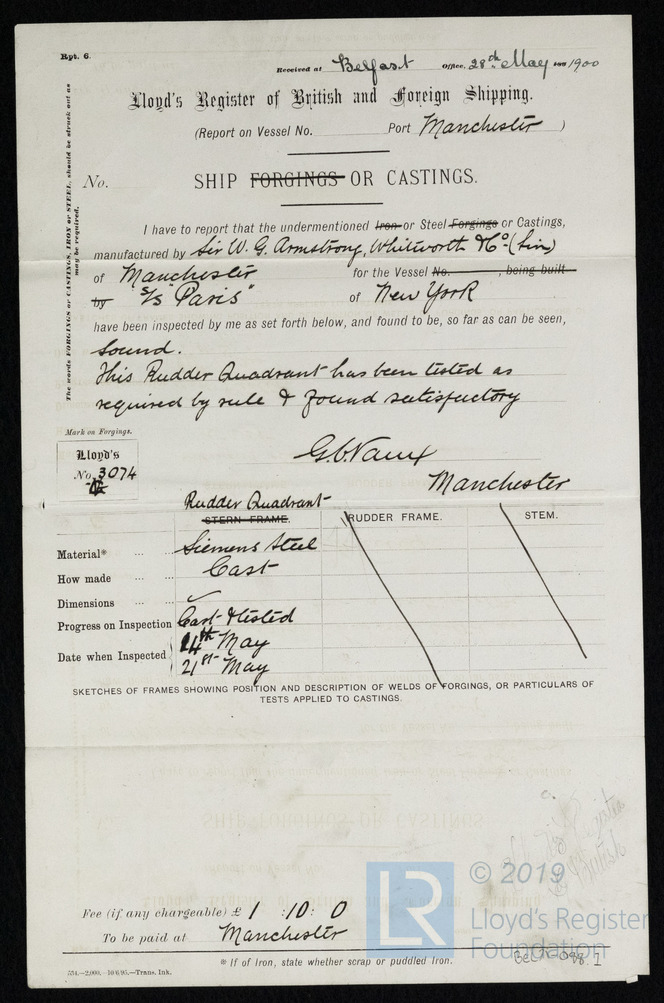 Rpt. 6.
Received at Belfast Office, 28th May 1900
Lloyd's Register of British and Foreign Shipping.
(Report on Vessel No. Port Manchester )
No. SHIP FORGINGS OR CASTINGS.
The words FORGINGS or CASTINGS, IRON or STEEL, should be struck out as
may be required.
I have to report that the undermentioned Iron or Steel Forgings or Castings,
manufactured by Sir W. G. Armstrong, Whitworth & Co. (Lim)
of Manchester for the Vessel No. , being built
by S/S "Paris" of New York
have been inspected by me as set forth below, and found to be, so far as can be seen,
sound.
This Rudder Quadrant has been tested as
required by rule & found satisfactory
Mark on Forgings.
G.C. Vaux
Lloyd's
No. 3074
Manchester
Rudder Quadrant
STERN FRAME. RUDDER FRAME. STEM.
Material* ... ... Siemens Steel
How made ... ... Cast
Dimensions ... ...
Progress on Inspection Cast & tested
Date when Inspected 14th May
21st May
SKETCHES OF FRAMES SHOWING POSITION AND DESCRIPTION OF WELDS OF FORGINGS, OR PARTICULARS OF
TESTS APPLIED TO CASTINGS.
© 2019
LR
Lloyd's Register
Foundation
Fee (if any chargeable) £ 1 : 10 : 0
To be paid at Manchester
* If of Iron, state whether scrap or puddled Iron.
554.—2,000.—10/6/95.—Trans. Ink.